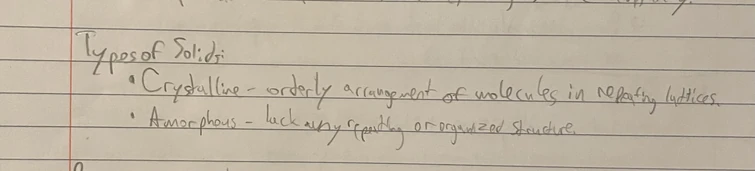 Types of Solids:
• Crystalline - orderly arrangement of molecules in repeating lattices.
• Amorphous - lack any repeating or organized structure.